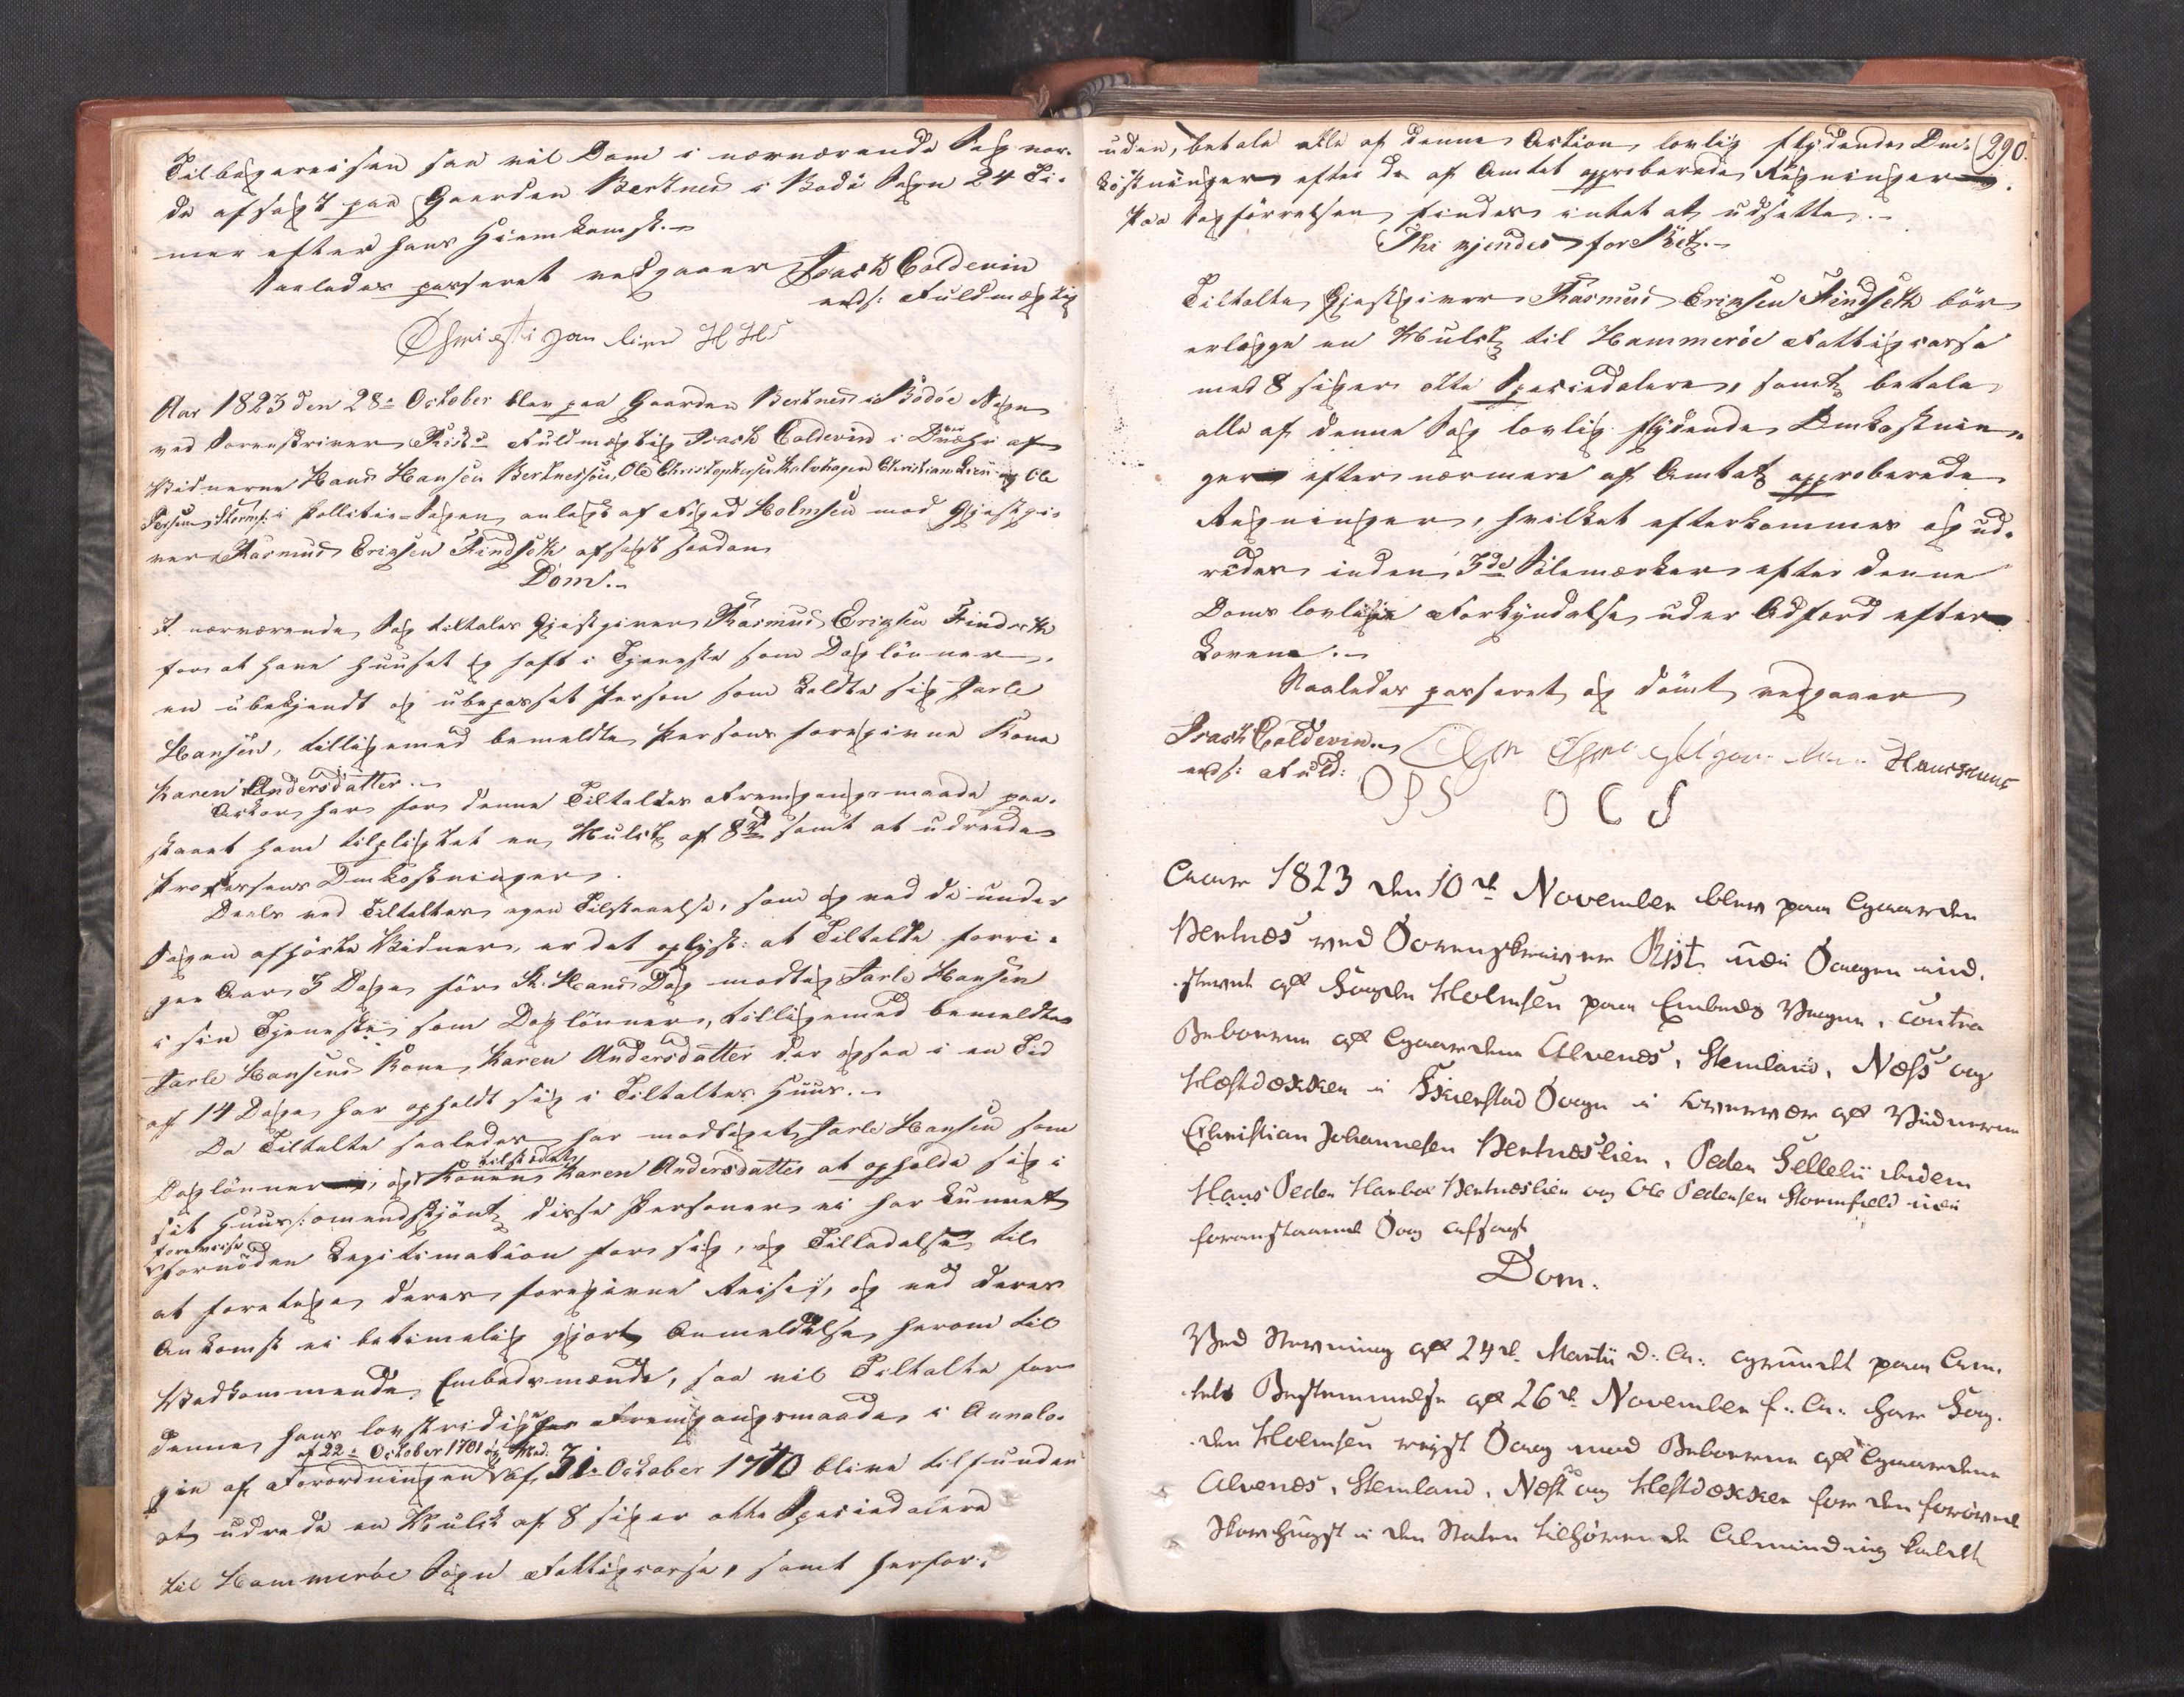 Tilbagereisen saa vil Dom i nærværende Sag vor-
de afsagt paa Gaarden Bertnes i Bodö Sogn 24 Ti-
mer efter hans Hiemkomst.
Saaledes passeret vedgaaer Isach Coldevin
eeds: Fuldmægtig
HHS
Aar 1823 den 28: October blev paa Gaarden Bertnes i Bodöe Sogn
ved Sorenskriver Rist's Fuldmægtig Isach Coldevin i Overvær af
Vidnerne Hans Hansen Bertnessjöen, Ole Christophersen Christian Lien og Ole
Stormf: i Pollitie-Sagen anlagt af Foged Holmsen mod Gjestgi-
ver Rasmus Erigsen Findseth afsagt saadan
Dom.
I nærværende Sag tiltales Gjestgiver Rasmus Erigsen Findseth
for at have huuset og haft i Tjeneste som Daglönner
en ubekjendt og ubepasset Person som kaldte sig Jarle
Hansen, tilligemed bemeldte Persons foregivne Kone
Karen Andersdatter.
Actor har for denne Tiltaltes Fremgangsmaade paa-
staaet ham tilpligtet en Mulct af 8 Spd samt at udreede
Processens Omkostninger.
Deels ved Tiltaltes egen Tilstaaelse, som og ved de under
Sagen afhörte Vidner, er det oplyst: at Tiltalte forri-
ge Aar 3 Dage för St. Hans Dag modtog Jarle Hansen
i sin Tjeneste som Daglönner, tilligemed bemeldte
Jarle Hansens Kone Karen Andersdatter der ogsaa i en Tid
af 14 Dage har opholdt sig i Tiltaltes Huus.
Da Tiltalte saaledes har modtaget Jarle Hansen som
Daglönner, og tilstædet Konen Karen Andersdatter at opholde sig i
sit Huus /: omendskjönt disse Personer ei har kunnet
forevise fornöden Legitimation for sig, og Tilladelse til
at foretage deres foregivne Reise, og ved deres
Ankomst ei betimelig gjort Anmeldelse herom til
Vedkommende Embedsmænd, saa vil Tiltalte for
denne hans lovstridige Fremgangsmaade i Analo-
gie af Forordningen af 22: October 1701 og Pl. af 31: October 1770 blive tilfunden
at udrede en Mulct af 8 siger otte Speciedalere
til Hammeröe Sogns Fattigcasse, samt herfor-
290.
uden, betale alle af denne Action lovlig flydende Om-
kostninger efter de af Amtet approberede Regninger.
Paa Sagförretsen findes intet at udsætte.
Thi kjendes for Ret.
Tiltalte Gjestgiver Rasmus Erigsen Findseth bör
erlægge en Mulct til Hammeröe Fattigcasse
med 8 siger otte Speciedalere, samt betale
alle af denne Sag lovlig flydende Omkostnin-
ger efter nærmere af Amtet approberede
Regninger, hvilket efterkommes og ud-
redes inden 3de Solemærker efter denne
Doms lovlige Forkyndelse under Adfærd efter
Loven.
Saaledes passeret og dömt vedgaaer
Isach Coldevin
eeds: Fuld:
Hans Hans
OPS OCS
Anno 1823 den 10de November blev paa Gaarden
Bertnæs ved Sorenskriver Rist udi Sagen ind-
stevnt af Fogden Holmsen paa Embeds Vegne, contra
Beboerne af Gaardene Alvenes, Stemland, Næss og
Hestdokken i Skierstad Sogn i Overvær af Vidnerne
Christian Johannesen Bertnæslien, Peder Jellelii ibidem
Hans Peder Hanboe Bertnæslien og Ole Pedersen Stormfield udi
foranstaaende Sag afsagt
Dom.
Ved Stevning af 24de Martii d: A: grundet paa Am-
tets Bestemmelse af 26de November f: A: har Fog-
den Holmsen reist Sag mod Beboerne af Gaardene
Alvenes, Stemland, Næss og Hestdokken for den forövede
Skovhugst i den Staten tilhörende Alminding kaldet